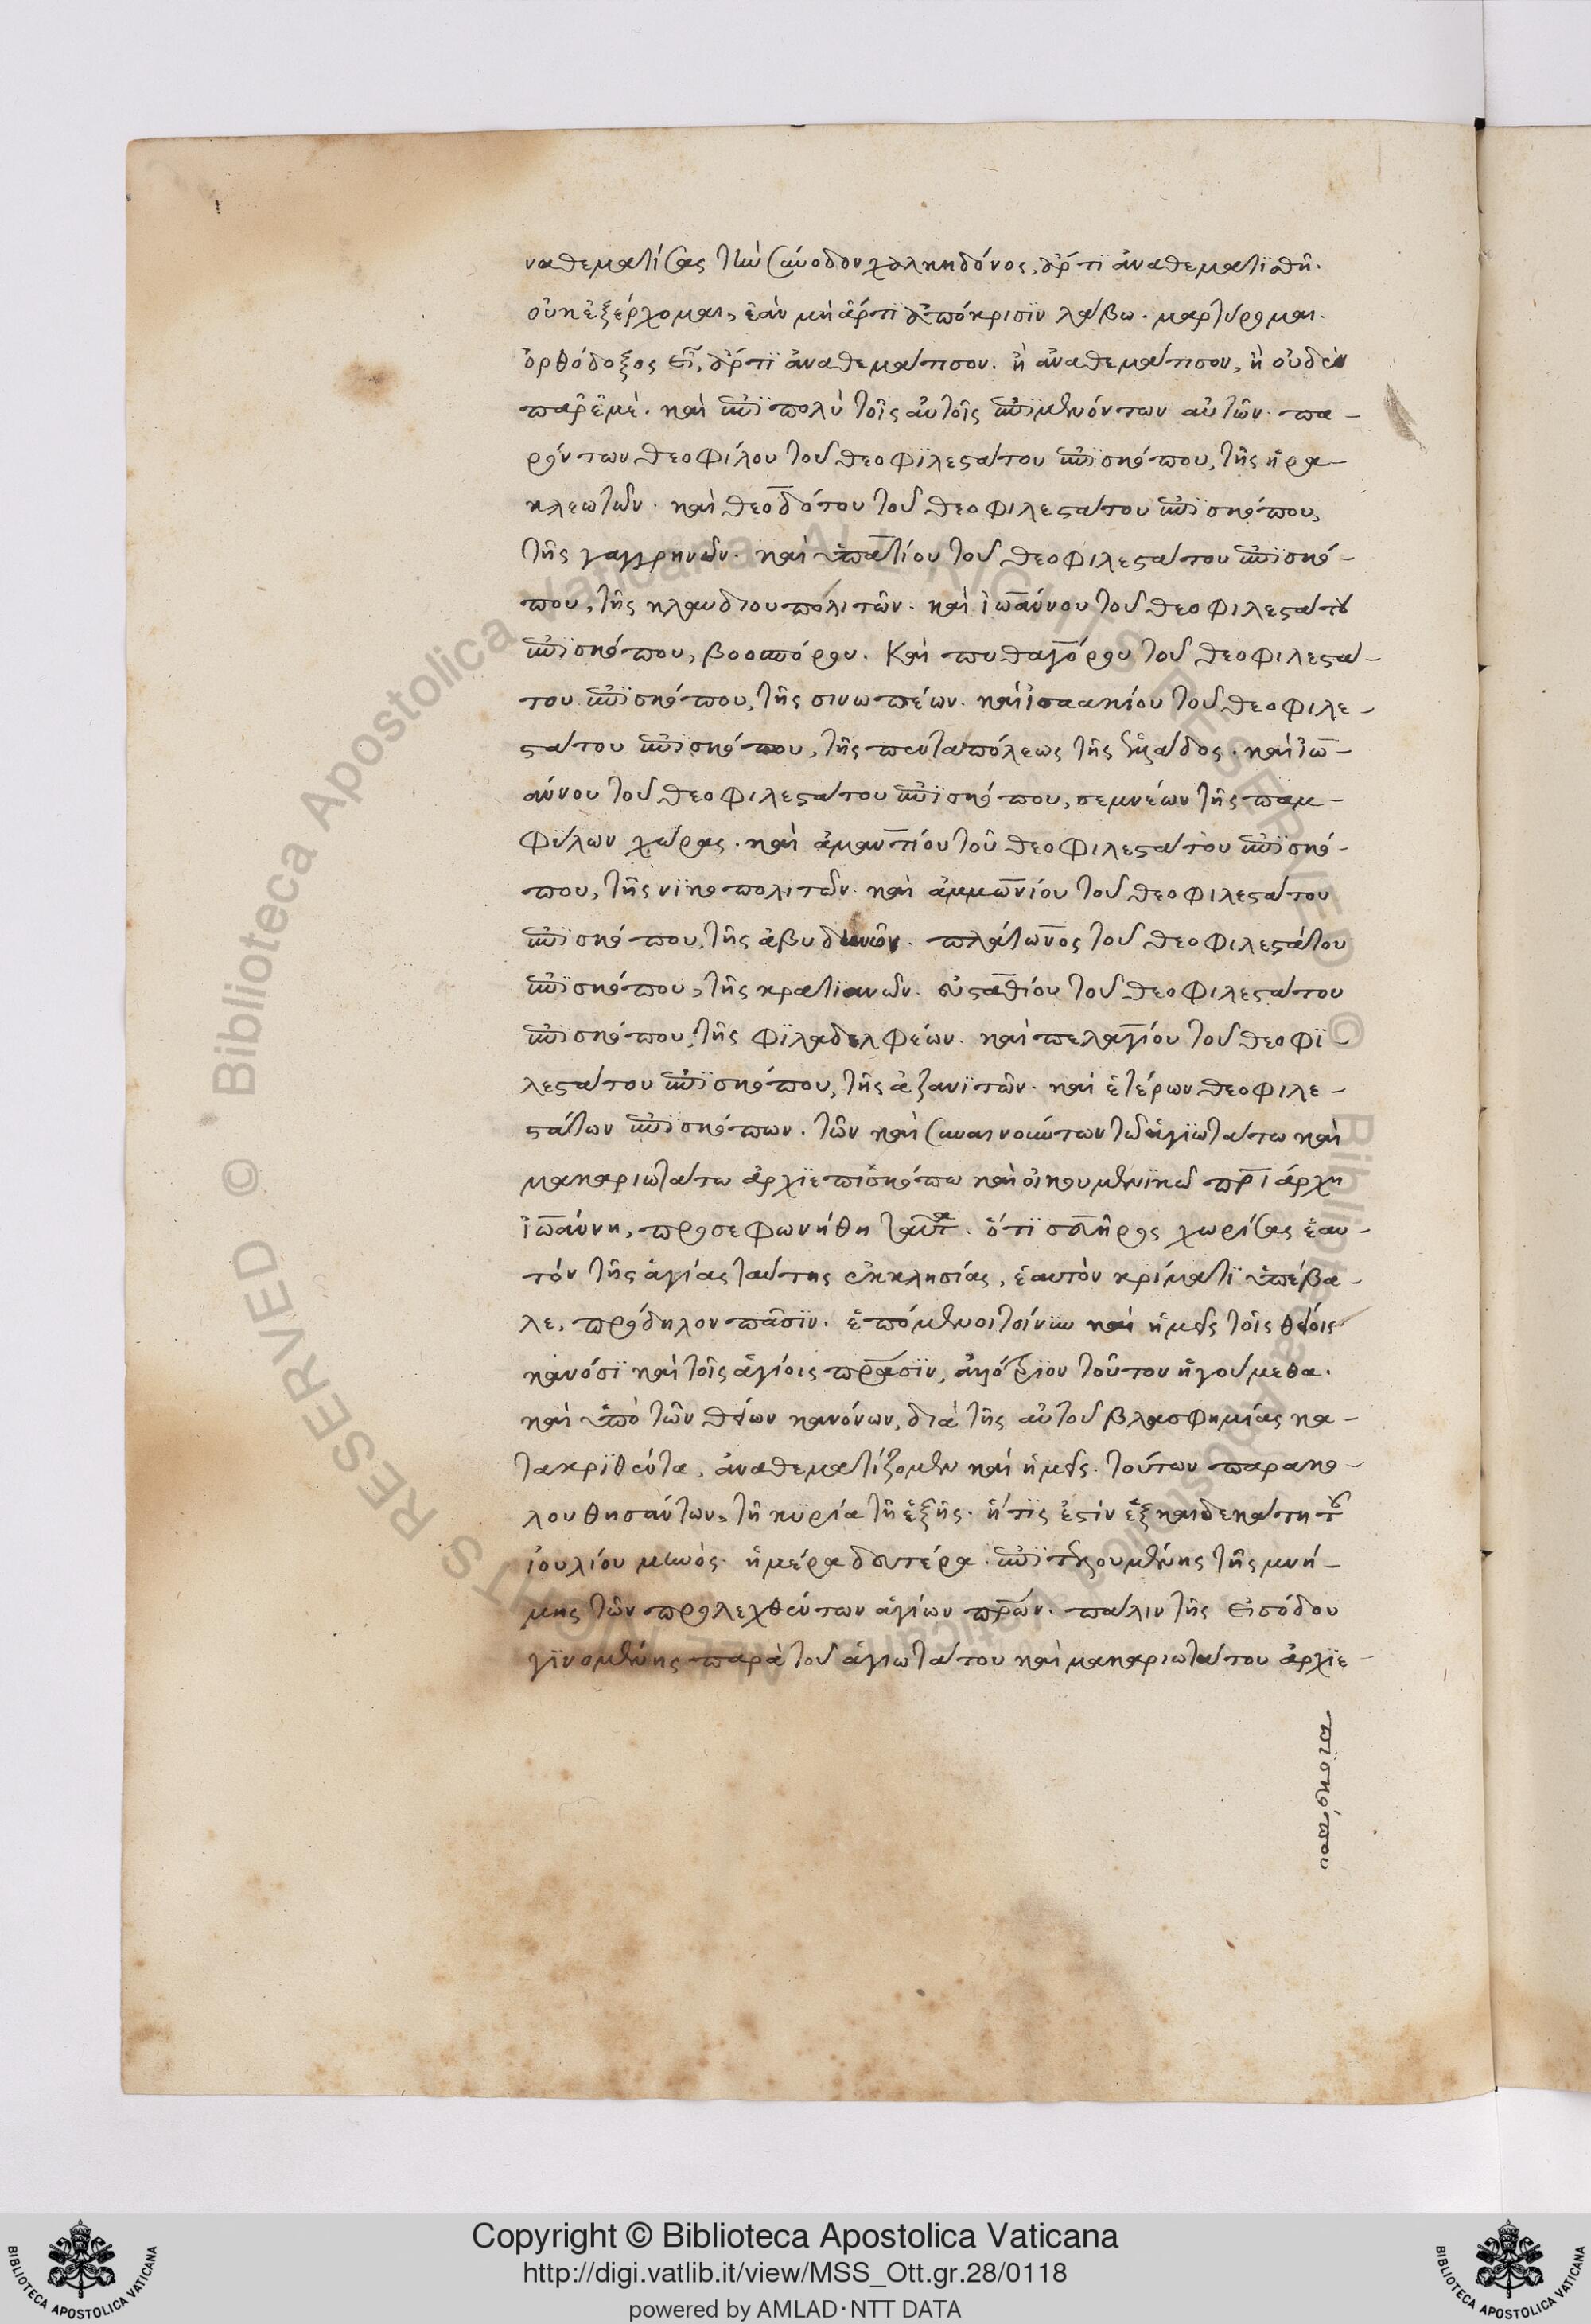 ναθεματίσας τὴν σύνοδον χαλκηδόνος, ἄρτι ἀναθεματισθῆ.
οὐκ ἐξέρχομαι, ἐὰν μὴ ἄρτι ἀπόκρισιν λάβω. μαρτύρομαι.
ὀρθόδοξος εἶ, ἄρτι ἀναθεμάτισον. ἢ ἀναθεμάτισον, ἢ οὐδὲν
παρ ἐμέ. καὶ ἐπὶ πολὺ τοῖς αὐτοῖς ἐπιμενόντων αὐτῶν. πα-
ρόντων θεοφίλου τοῦ θεοφιλεστάτου ἐπισκόπου, τῆς ἡρα-
κλεωτῶν. καὶ θεοδότου τοῦ θεοφιλεστάτου ἐπισκόπου,
τῆς γαγγρηνῶν. καὶ ὑπατίου τοῦ θεοφιλεστάτου ἐπισκό-
που, τῆς κλαυδιουπόλιτῶν. καὶ ἰωάννου τοῦ θεοφιλεστάτου
ἐπισκόπου, βοσπόρου. Καὶ πυθαγόρου τοῦ θεοφιλεστά-
του ἐπισκόπου, τῆς σινωπέων. καὶ ἰσαακίου τοῦ θεοφιλε-
στάτου ἐπισκόπου, τῆς πενταπόλεως τῆς ἑλλάδος. καὶ ἰω-
άννου τοῦ θεοφιλεστάτου ἐπισκόπου, σεμνέων τῆς παμ-
φύλων χώρας. καὶ ἀμαντίου τοῦ θεοφιλεστάτου ἐπισκό-
που, τῆς νικοπολιτῶν. καὶ ἀμμωνίου τοῦ θεοφιλεστάτου
ἐπισκόπου, τῆς ἀβυδηνῶν. πλάτωνος τοῦ θεοφιλεστάτου
ἐπισκόπου, τῆς κρατιανῶν. εὐσταθίου τοῦ θεοφιλεστάτου
ἐπισκόπου, τῆς φιλαδελφέων. καὶ πελαγίου τοῦ θεοφι
λεστάτου ἐπισκόπου, τῆς ἀζανιτῶν. καὶ ἑτέρων θεοφιλε-
στάτων ἐπισκόπων. τῶν καὶ συναινούντων τῷ ἁγιωτάτω καὶ
μακαριωτάτω ἀρχιεπισκόπω καὶ οἰκουμενικῷ πριάρχη
ἰωάννη, προσεφωνήθη ταῦτα. ὅτι σευῆρος χωρίσας ἑαυ-
τὸν τῆς ἁγίας ταύτης ἐκκλησίας, ἑαυτὸν κρίματι ὑπέβα-
λε, πρόδηλον πᾶσιν. ἑπόμενοι τοίνυν καὶ ἡμεῖς τοῖς θείοις
κανόσι καὶ τοῖς ἁγίοις πράσιν, ἀλλότριον τοῦτον ἡγούμεθα.
καὶ ὑπὸ τῶν θείων κανόνων, διὰ τῆς αὐτοῦ βλασφημίας κα-
τακριθέντα, ἀναθεματίζομεν καὶ ἡμεῖς. τούτων παρακο-
λουθησάντων, τῆ κυρία τῆ ἑξῆς. ἥτις ἐστὶν ἑξκαιδεκάτη τοῦ
ἰουλίου μηνός. ἡμέρα δευτέρα. ἐπιτελουμένης τῆς μνή-
μης τῶν προλεχθέντων ἁγίων πρῶν. πάλιν τῆς εἰσόδου
γινομένης παρὰ τοῦ ἁγιωτάτου καὶ μακαριωτάτου ἀρχιε-
πισκόπου
Biblioteca Apostolica Vaticana ALL RIGHTS RESERVED ©
Biblioteca Apostolica Vaticana ALL RIGHTS RESERVED ©
Copyright © Biblioteca Apostolica Vaticana
http://digi.vatlib.it/view/MSS_Ott.gr.28/0118
powered by AMLAD·NTT DATA
BIBLIOTECA APOSTOLICA VATICANA
BIBLIOTECA APOSTOLICA VATICANA